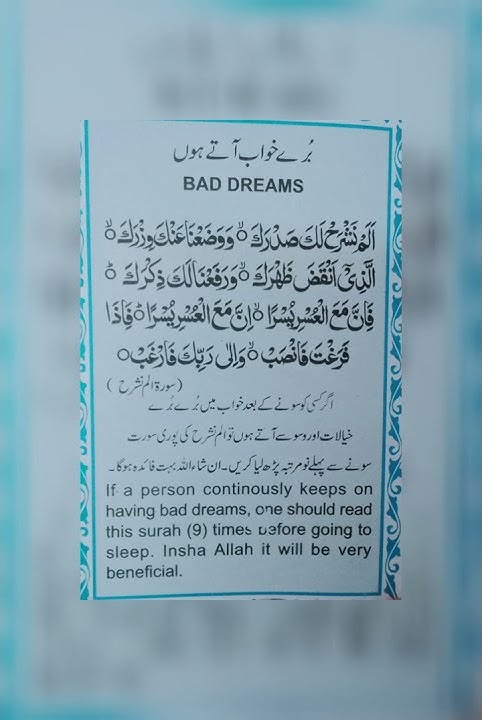 بُرے خواب آتے ہوں
BAD DREAMS
اَلَمْ نَشْرَحْ لَكَ صَدْرَكَ ۙ وَوَضَعْنَا عَنْكَ وِزْرَكَ ۙ
الَّذِیْۤ اَنْقَضَ ظَهْرَكَ ۙ وَرَفَعْنَا لَكَ ذِكْرَكَ ؕ
فَاِنَّ مَعَ الْعُسْرِ یُسْرًا ۙ اِنَّ مَعَ الْعُسْرِ یُسْرًا ؕ فَاِذَا
فَرَغْتَ فَانْصَبْ ۙ وَاِلٰی رَبِّكَ فَارْغَبْ ۠
(سورۃ الم نشرح)
اگر کسی کو سونے کے بعد خواب میں بُرے بُرے
خیالات اور وسوسے آتے ہوں تو الم نشرح کی پوری سورت
سونے سے پہلے نو مرتبہ پڑھ لیا کریں۔ ان شاء اللہ بہت فائدہ ہوگا۔
If a person continously keeps on
having bad dreams, one should read
this surah (9) times before going to
sleep. Insha Allah it will be very
beneficial.